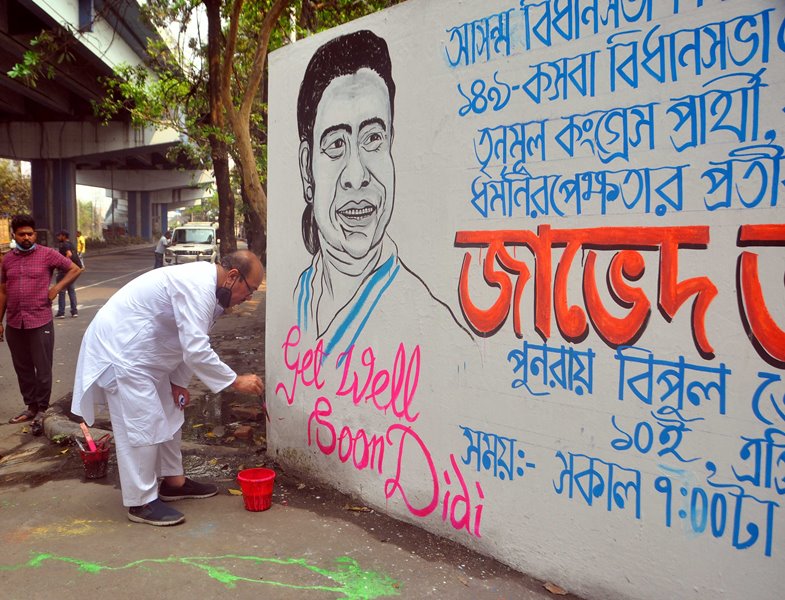 আসন্ন বিধানসভা
১৪৯-কসবা বিধানসভা
তৃনমূল কংগ্রেস প্রার্থী,
ধর্মনিরপেক্ষতার
জাভেদ
পুনরায় বিপুল
১০ই,
সময়:- সকাল ৭:00টা
Get Well
Soon
Didi